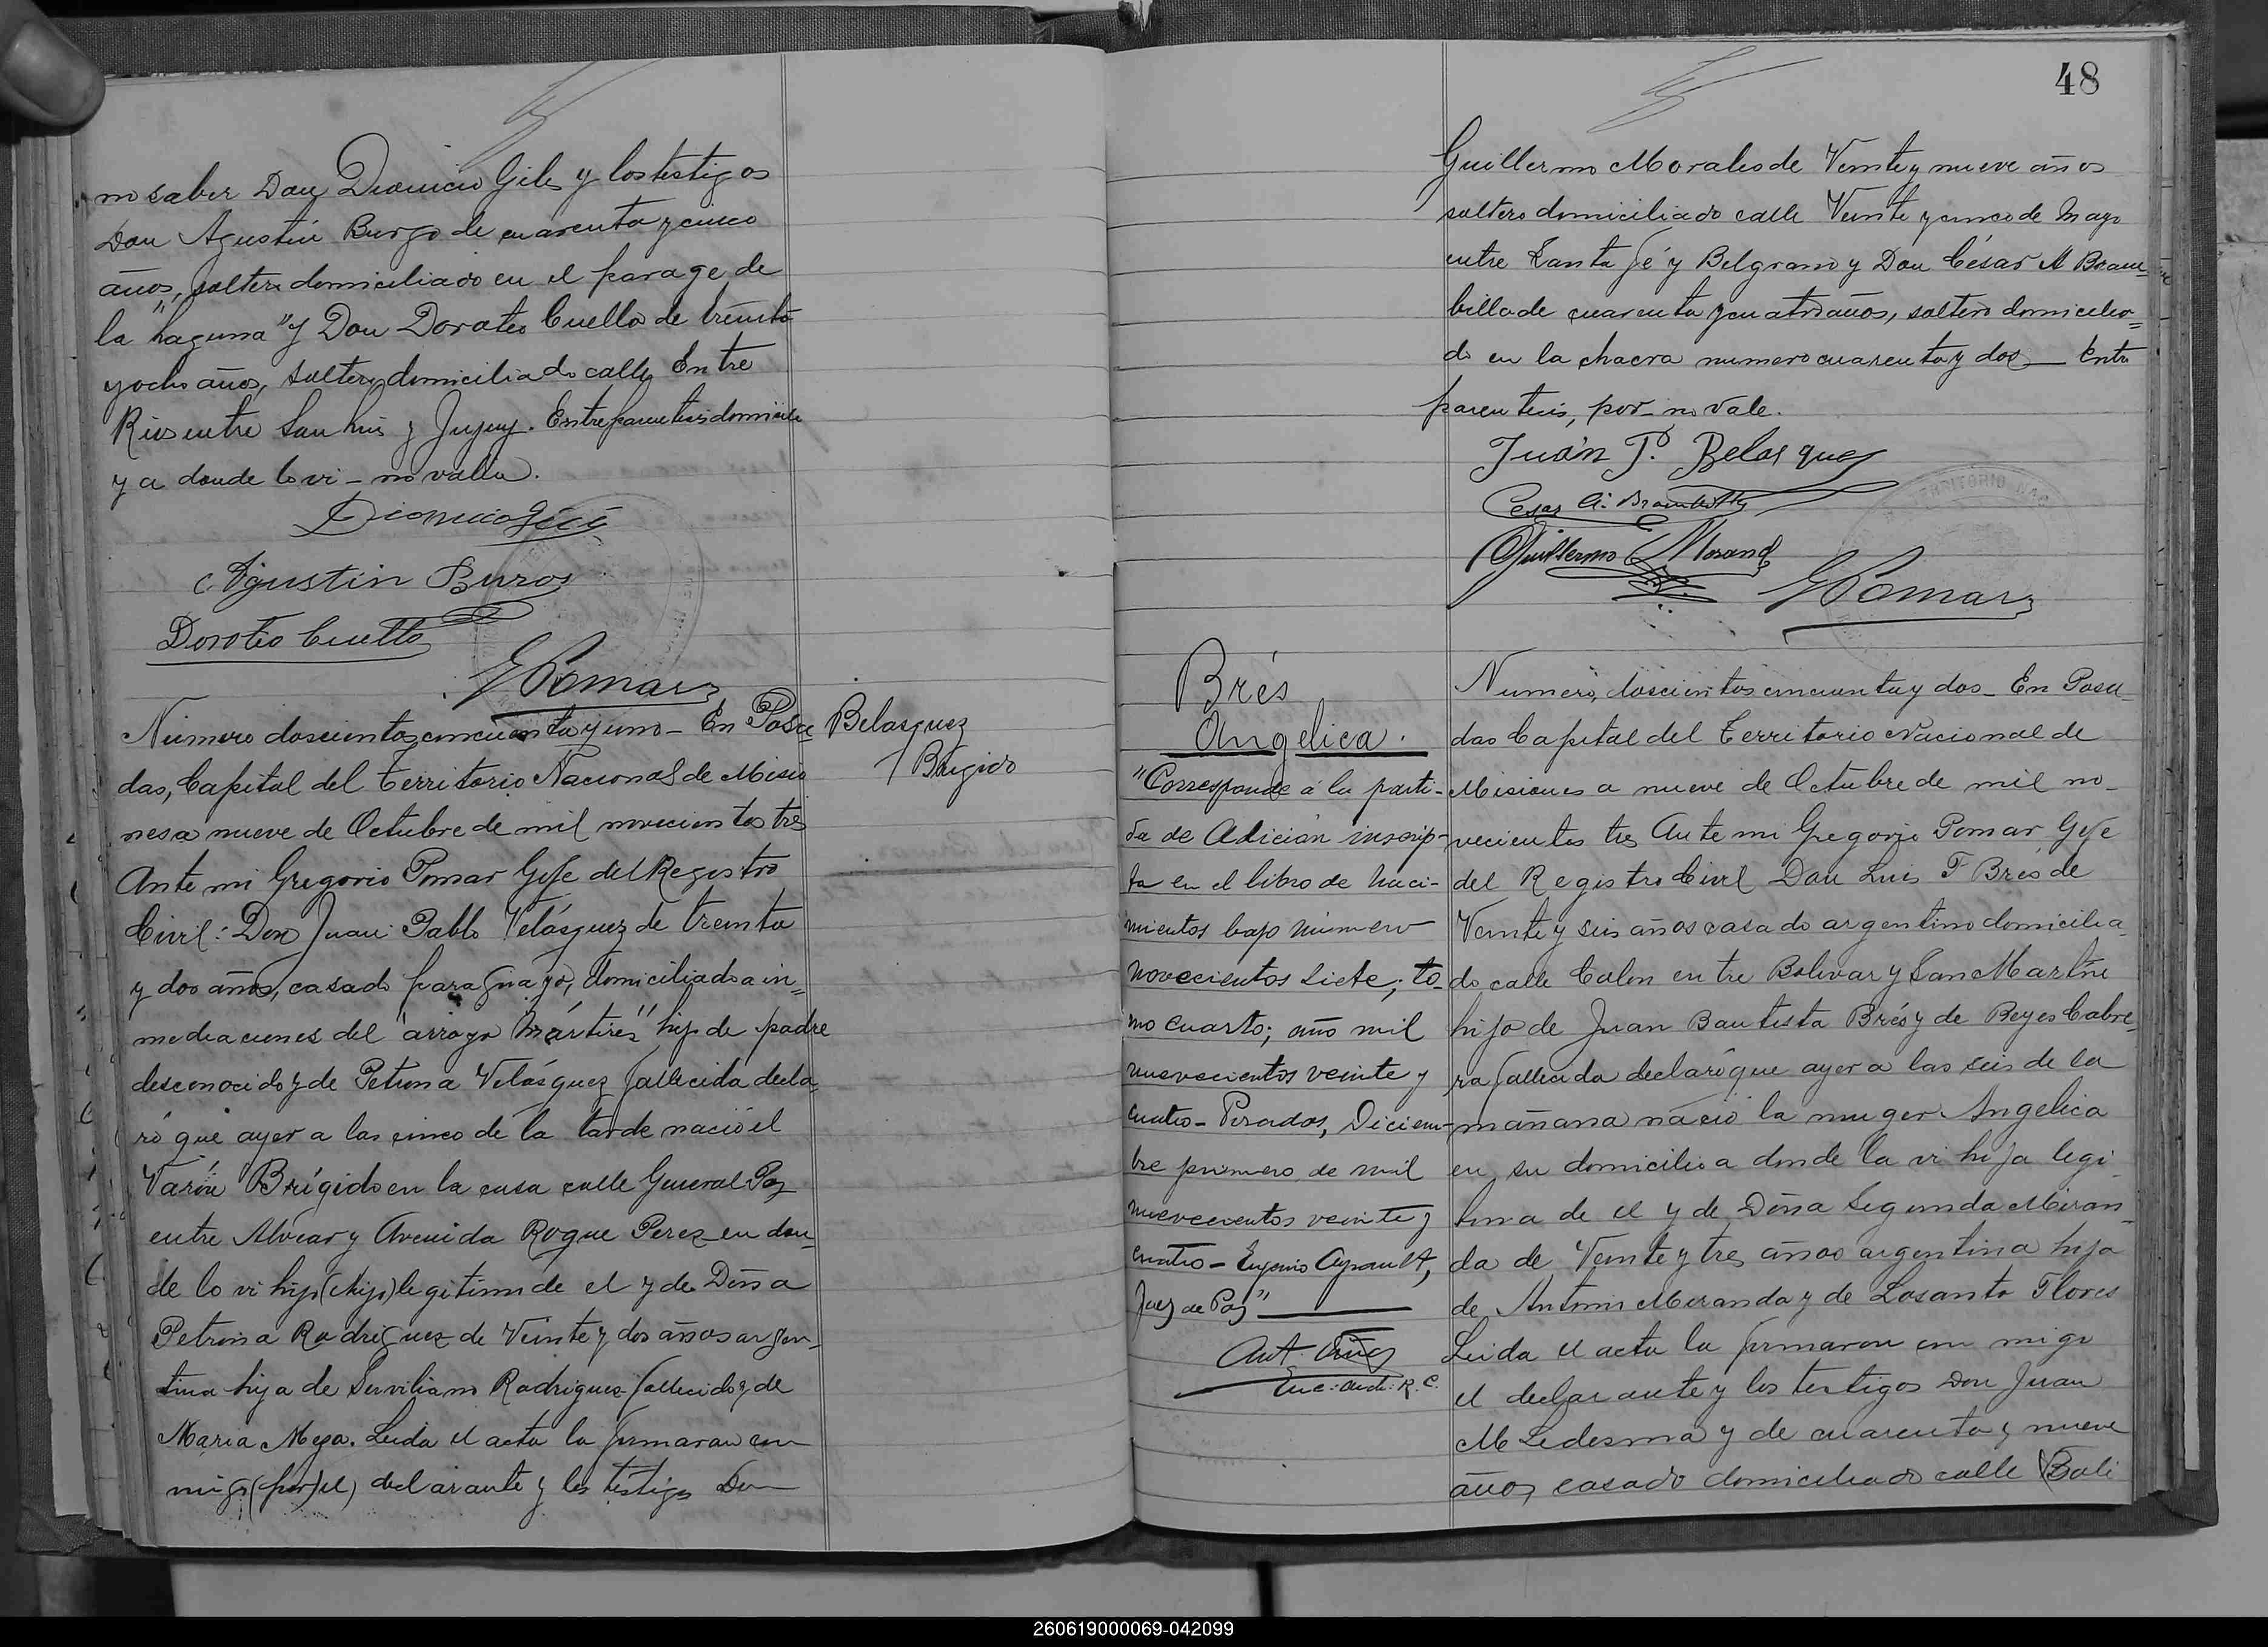 no saber Don Dionicio Giles y los testigos
Don Agustin Burgo de cuarenta y cinco
años, soltero domiciliado en el parage de
la "Laguna" y Don Doroteo Cuello de treinta
y ocho años, soltero domiciliado calle Entre
Rios entre San Luis y Jujuy. Entre parentesis domicilio
y a donde lo vi - no vallen.
Dionicio
Agustin Burgos
Doroteo Cuello
G Pomar
Número doscientos cincuenta y uno - En Posa
das, Capital del Territorio Nacional de Misio
nes a nueve de Octubre de mil novecientos tres
Ante mi Gregorio Pomar Gefe del Registro
Civil: Don Juan Pablo Velásquez de treinta
y dos años, casado paraguayo, domiciliado a in=
mediaciones del "arroyo Mártires" hijo de padre
desconocido y de Petrona Velásquez fallecida decla
ró que ayer a las cinco de la tarde nació el
Varón Brígido en la casa calle General Paz
entre Alvear y Avenida Roque Perez en don
de lo vi hijo (hijo) legitimo de el y de Doña
Petrona Rodriguez de Veinte y dos años argen
tina hija de Serviliano Rodriguez fallecido y de
Maria Meza. Leida el acta la firmaron con
migo (por) el) declarante y los testigos Don
Belasquez
Brigido
48
Guillermo Morales de Veinte y nueve años
soltero domiciliado calle Veinte y cinco de Mayo
entre Santa Fé y Belgrano y Don César A Bram
billa de cuarenta y cuatro años, soltero domicilia=
do en la chacra numero cuarenta y dos — Entre
parentesis, por - no vale.
Juán P. Belasquez
Cesar A. Brambilla
Guillermo Morales
G Pomar
Brés
Angelica.
"Corresponde á la parti-
da de Adición inscrip-
ta en el libro de naci-
mientos bajo número
novecientos siete; to-
mo cuarto; año mil
novecientos veinte y
cuatro - Posadas, Diciem-
bre primero de mil
novecientos veinte y
cuatro - Eugenio Ayrault,
Juez de Paz"
Enc: Arch: R. C.
Numero, doscientos cincuenta y dos - En Posa
das Capital del Territorio Nacional de
Misiones a nueve de Octubre de mil no-
vecientos tres Ante mi Gregorio Pomar Gefe
del Registro Civil Don Luis F Brés de
Veinte y seis años casado argentino domicilia
do calle Colon entre Bolivar y San Martin
hijo de Juan Bautista Brés y de Reyes Cabre
ra fallecida declaró que ayer a las seis de la
mañana nació la muger Angelica
en su domicilio a donde la vi hija legi
tima de el y de Doña Segunda Miran
da de Veinte y tres años argentina hija
de Antonio Miranda y de Losanto Flores
Leida el acta la firmaron con migo
el declarante y los testigos Don Juan
M Ledesma y de cuarenta y nueve
años casado domiciliado calle Boli
260619000069-042099